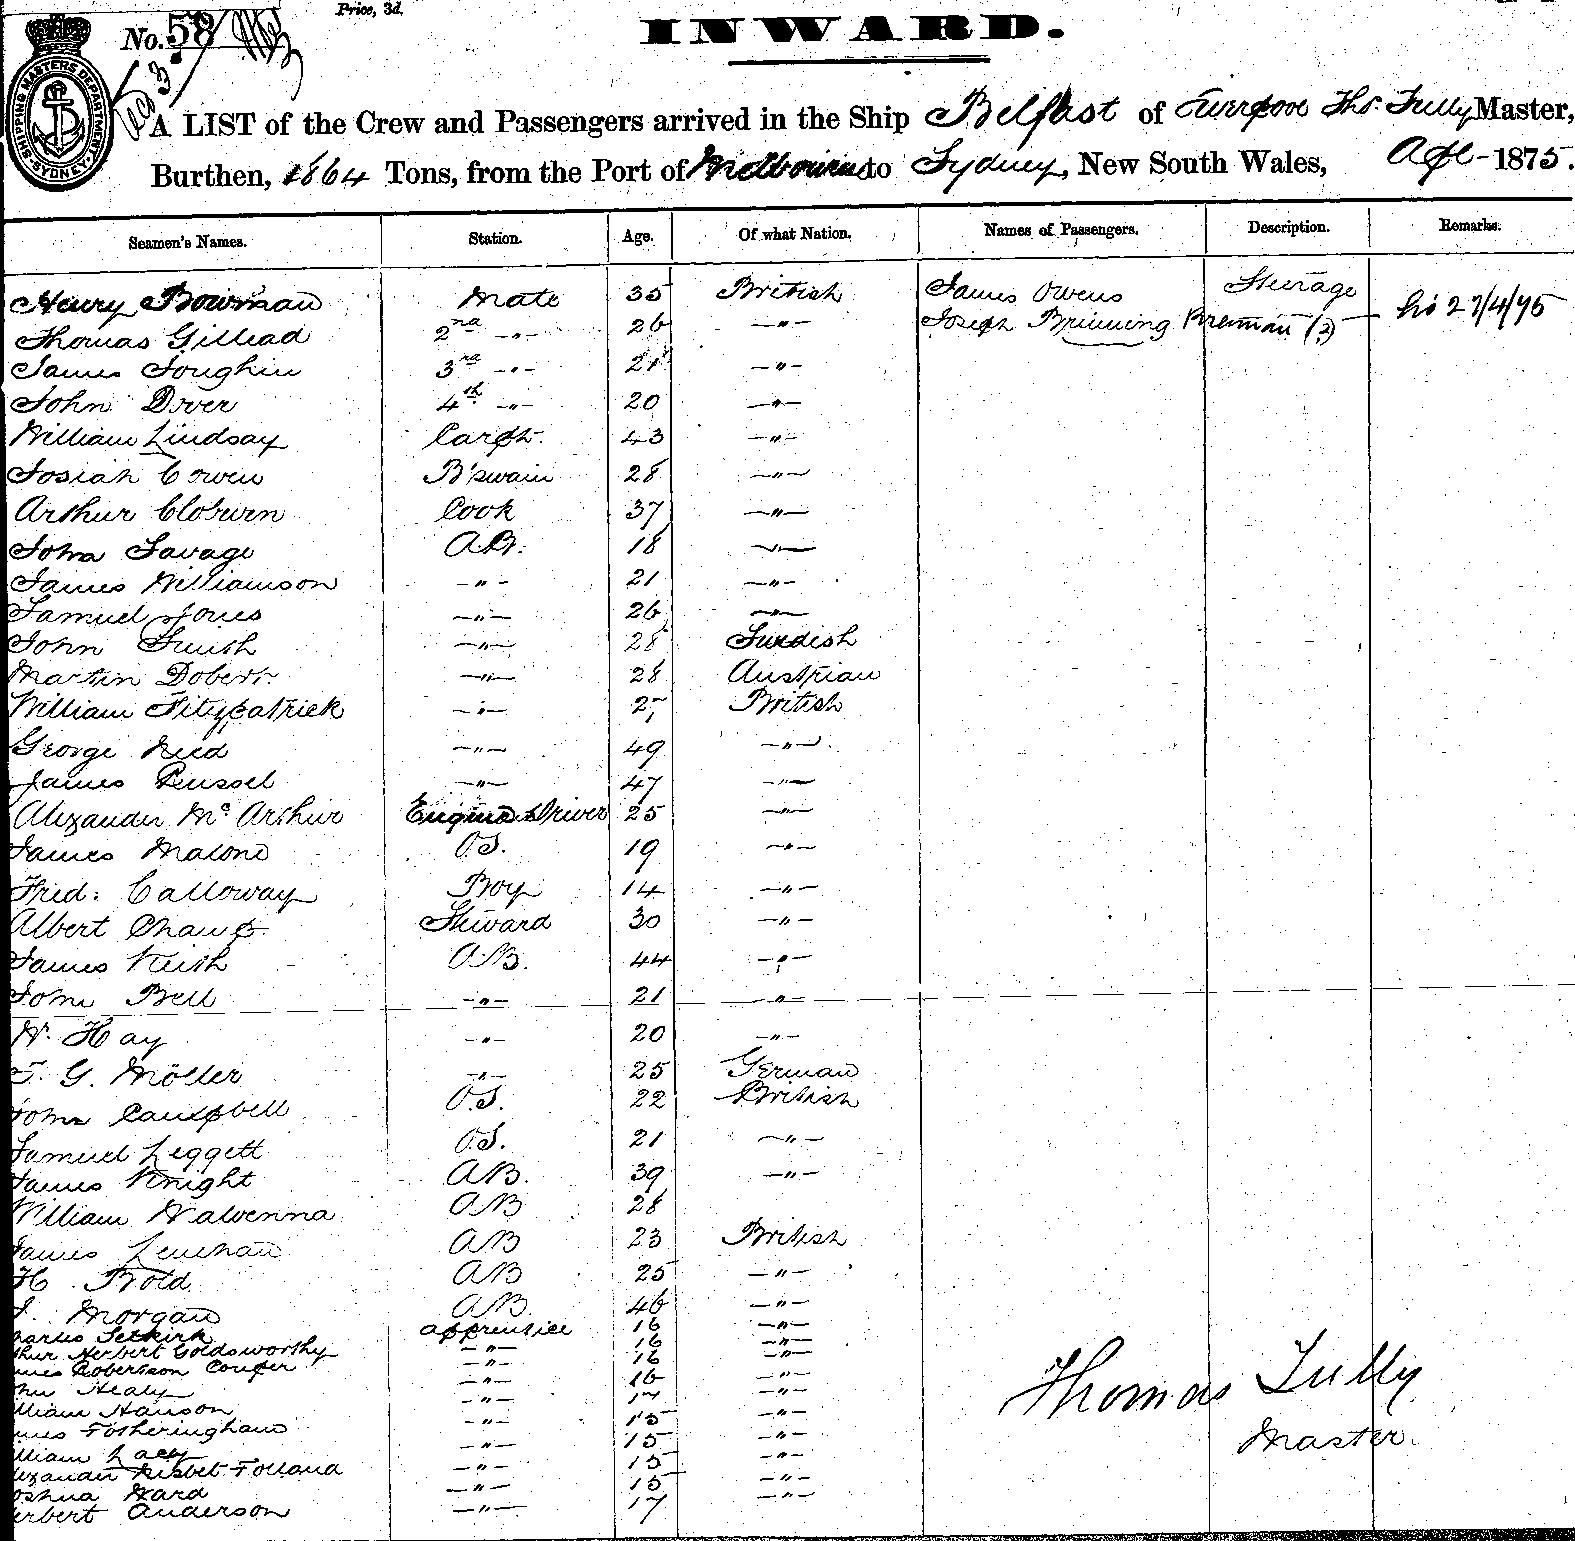 Price, 3d.
No. 58
INWARD.
SHIPPING MASTERS DEPARTMENT SYDNEY
A LIST of the Crew and Passengers arrived in the Ship Belfast of Liverpool Ths. Tully Master,
Burthen, 1864 Tons, from the Port of Melbourne to Sydney, New South Wales, Apl - 1875.
Seamen's Names. Station. Age. Of what Nation. Names of Passengers. Description. Remarks.
Henry Bowman Mate 35 British James Owens Steerage
Thomas Gillead 2nd -"- 26 -"- Joseph Brinning Breman (?) 22/4/75
James Joughin 3rd -"- 21 -"-
John Dover 4th -"- 20 -"-
William Lindsay Carpt. 43 -"-
Josiah Cowen B'swain 28 -"-
Arthur Cloburn Cook 37 -"-
John Savage A.B. 18 -"-
James Williamson -"- 21 -"-
Samuel Jones -"- 26 -"-
John Smith -"- 28 Swedish
Martin Dobert. -"- 28 Austrian
William Fitzpatrick -"- 27 British
George Reed -"- 49 -"-
James Russel -"- 47 -"-
Alexander McArthur Engine Driver 25 -"-
James Malone O.S. 19 -"-
Fred: Calloway Boy 14 -"-
Albert Steward 30 -"-
James Keith A.B. 44 -"-
John Bell -"- 21 -"-
W. Hay -"- 20 -"-
G. Möller -"- 25 German
John Campbell O.S. 22 British
Samuel Leggett O.S. 21 -"-
James Knight AB. 39 -"-
William Nalvenna AB 28
James Lenehan AB 23 British
H. Bold AB 25 -"-
J. Morgan AB. 46 -"-
harles Selkirk apprentice 16 -"-
thur Herbert Goldsworthy -"- 16 -"-
mes Robertson Couper -"- 16 -"-
ohn Healy -"- 16 -"-
illiam Hanson -"- 17 -"-
mes Fotheringham -"- 15 -"-
illiam Lacy -"- 15 -"-
lexander Nisbet Folland -"- 15 -"-
oshua Ward -"- 15 -"-
erbert Anderson -"- 17 -"-
Thomas Tully
Master.